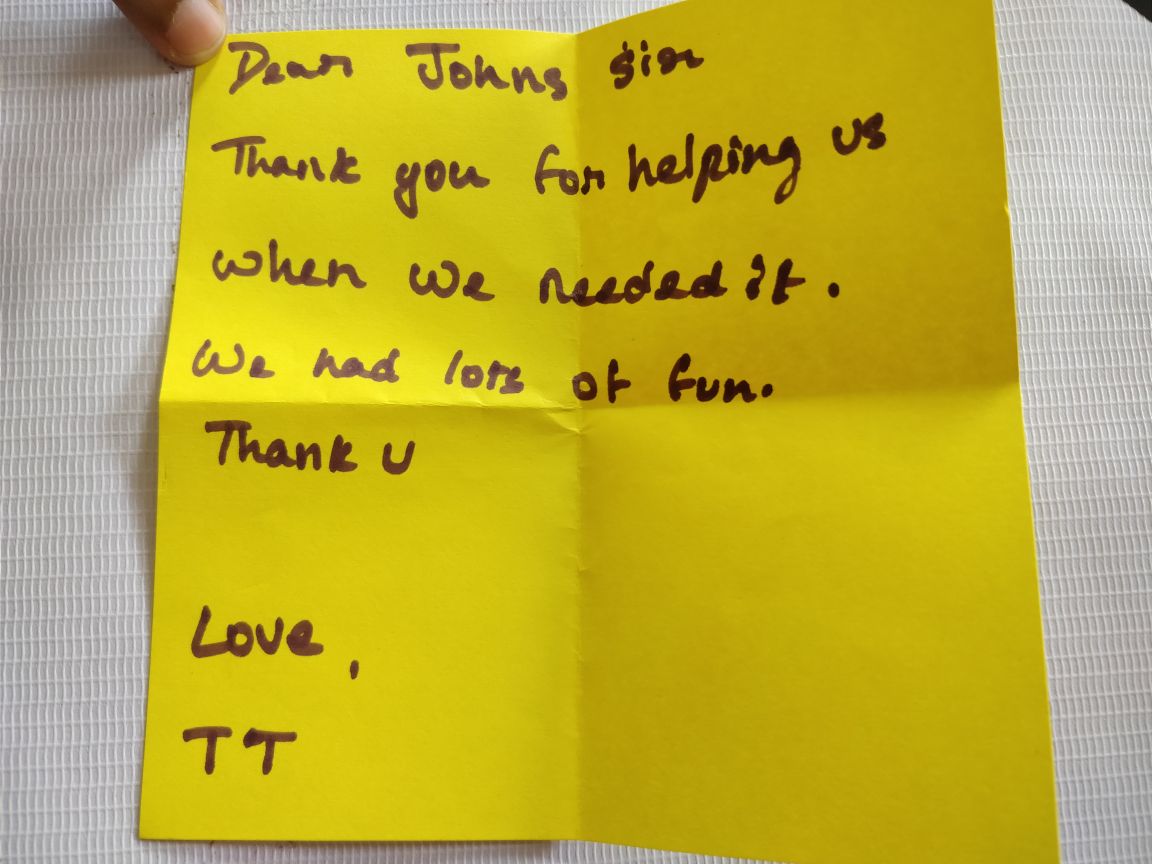 Dear Johns sir
Thank you for helping us
when we needed it.
We had lots of fun.
Thank U
Love,
TT